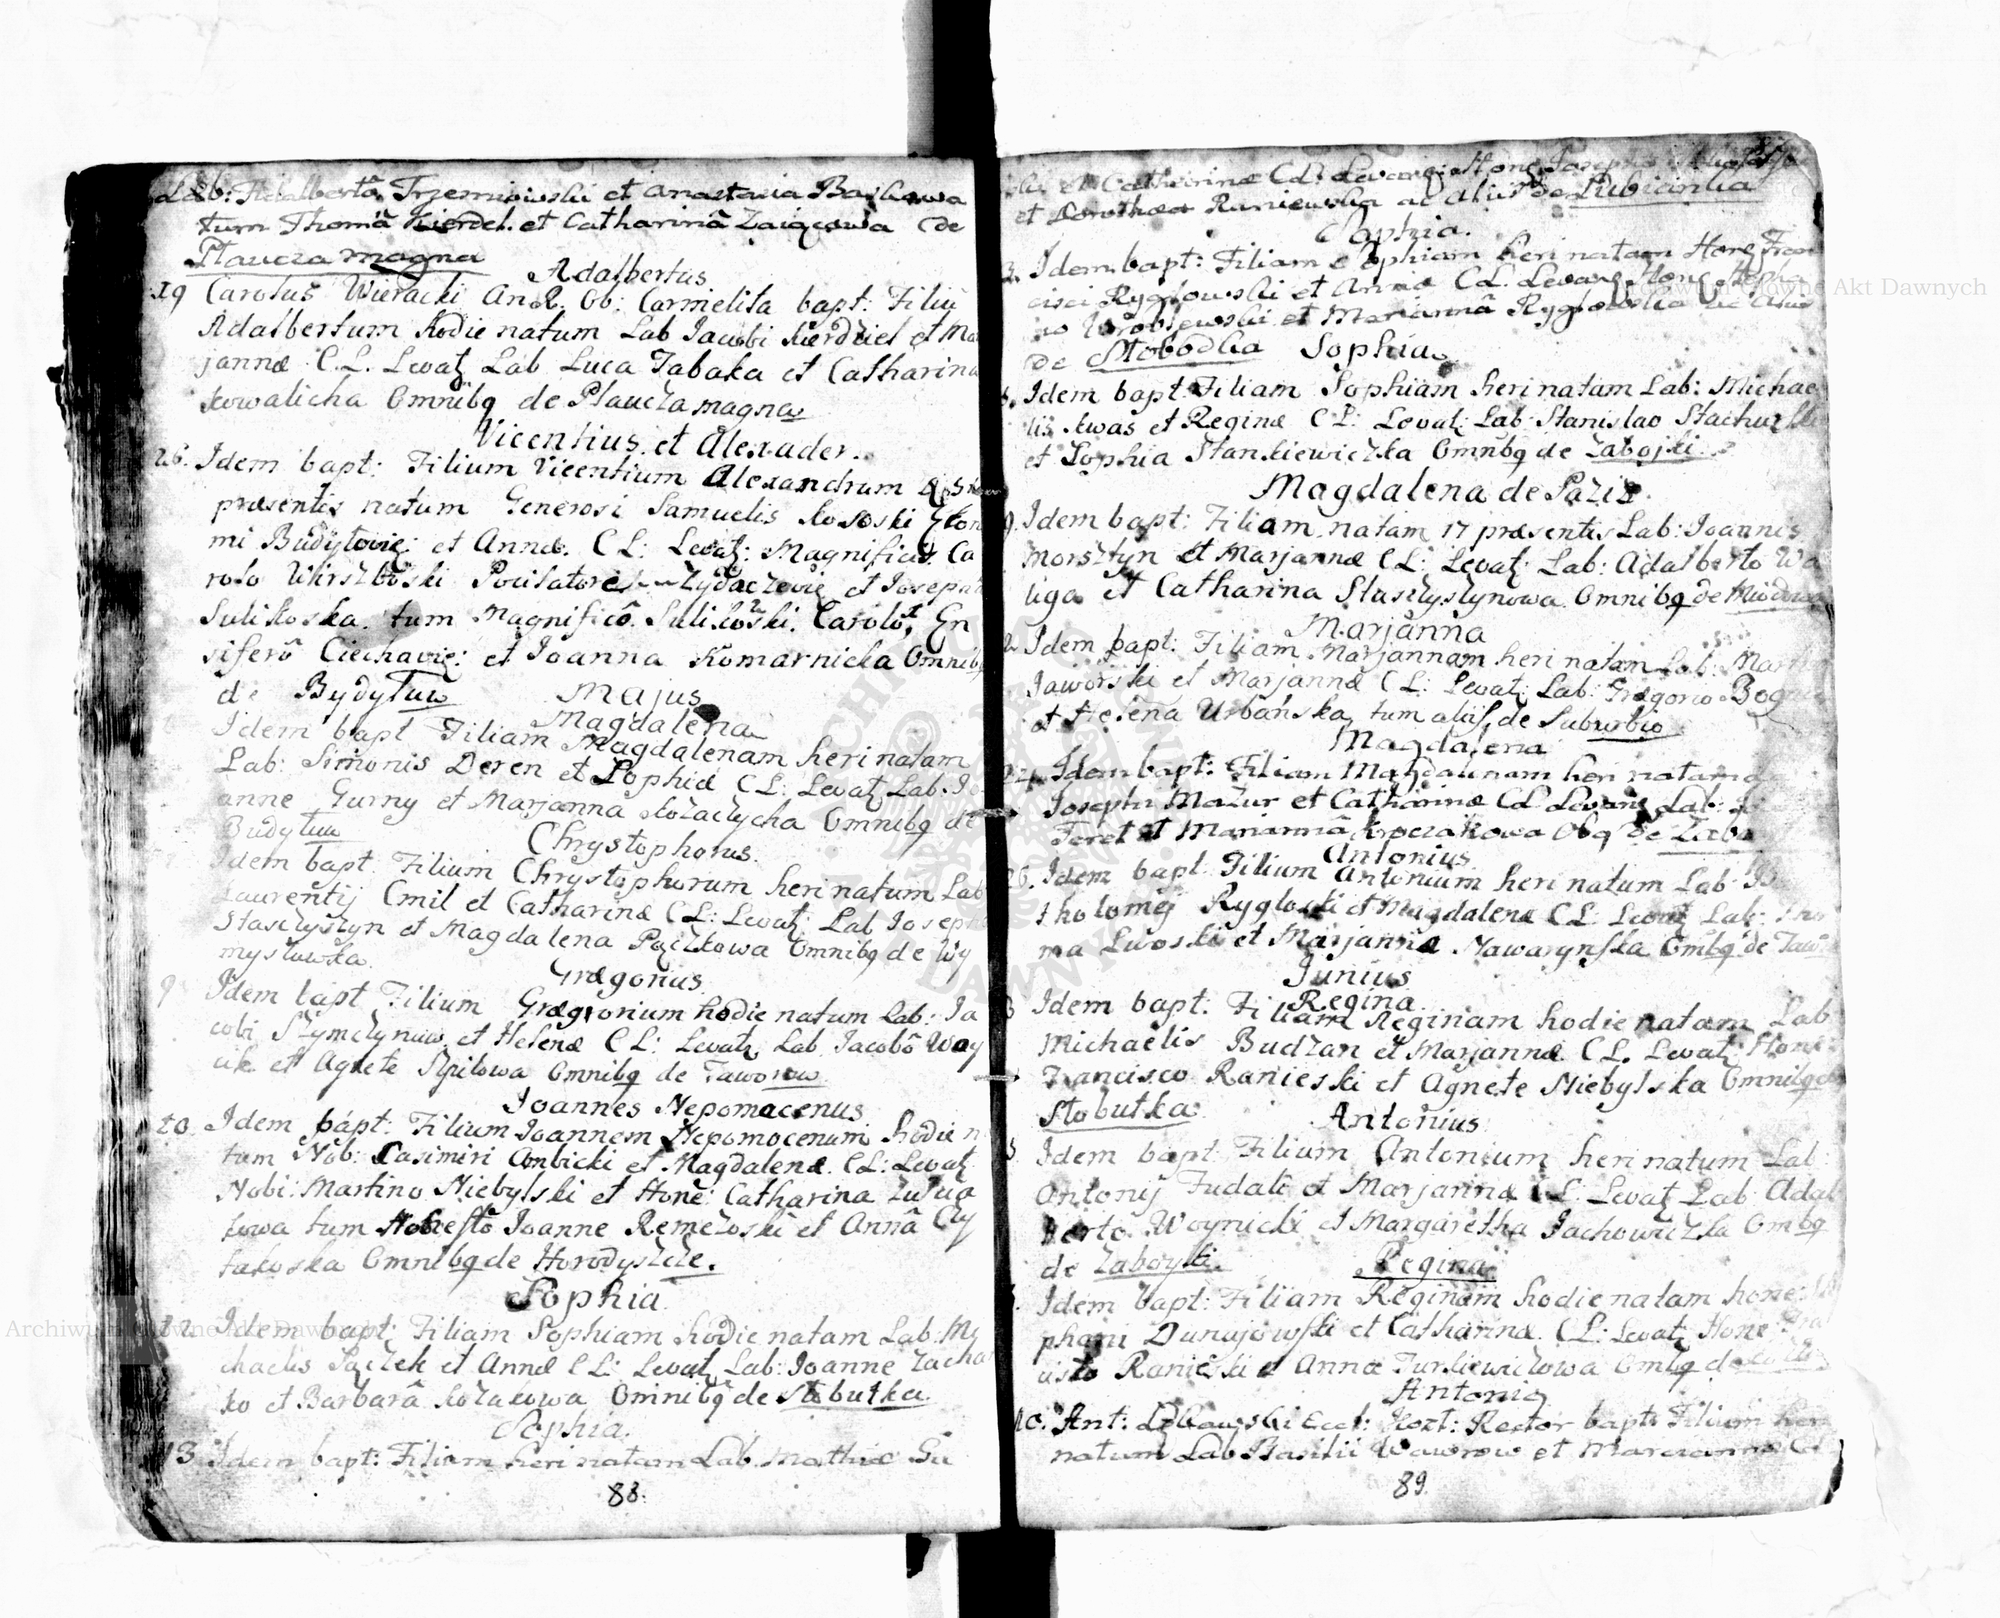 Lab: Adalbertô Trzemiowski et Anastasia Baskowa
tum Thomâ Kierdel. et Catharinâ Zaigcowa de
Plaucza magna
Adalbertus.
19 Carolus Wieracki An. R. Ob: Carmelita bapt: Filiu
Adalbertum hodie natum Lab Jacobi Kierdziel et Ma
jannæ C.L. Levatȝ Lab Luca Tabaka et Catharina
Kowalicha Omnibq de Plaucza magna
Vicentius et Alexader.
26. Idem bapt: Filium Vicentium Alexandrum
præsentis natum Generosi Samuelis Kososki
mi Budytovie: et Annæ. CL: Levatȝ: Magnifico Ca
rolo Wirszboski Zydaczovie et Joseph
Sulikoska. tum Magnificô Sulikoski. Carolo, En
siferô Ciechavie: et Joanna Komarnicka Omnibq
de Bydytuw Majus
Magdalena
Idem bapt Filiam Magdalenam heri natam
Lab: Simonis Deren et Sophiæ CL: Levatȝ Lab. Jo
anne Gurny et Marjanna Kozaczycha Omnibq de
Budytuw
Chrystophorus.
Idem bapt. Filium Chrystophorum heri natum Lab
Laurentij Cmil et Catharinæ CL: Levatȝ Lab Joseph
Staszyszyn et Magdalena Pączkowa Omnibq de Wy
mysłuwka.
Grægorius.
9 Idem bapt Filium Grægorium hodie natum Lab: Ja
cobi Szymczynaw et Helenæ CL: Levatȝ Lab Jacobô Woy
cik et Agnete Spitowa Omnibq de Jaworow
Joannes Nepomocenus
10. Idem bapt: Filium Joannem Nepomocenum hodie n
tum Nob: Casimiri Ambicki et Magdalenæ. CL: Levatȝ
Nobi: Martino Niebylski et Hone: Catharina
towa tum Honestô Joanne Remezoski et Annâ Czy
takoska Omnibq de Horodyszcze.
Sophia
12. Idem bapt: Filiam Sophiam hodie natam Lab: My
chaelis Pączek et Annæ CL: Levatȝ Lab: Joanne Zacha
ko et Barbarâ Kozakowa Omnibq de Stobutka.
Sophia.
13 Idem bapt: Filiam heri natam Lab. Mathiæ Gu
88.
et Catharinæ CL: Levanȝ: Hone Josepho
et Dorothea Raniewska ac aliis de Lubicinka
Sophia.
Idem bapt: Filiam Sophiam heri natam Hone Fran
cisci Ryglowski et Annæ CL. Levanȝ Hone Stepha
no Wroblewski et Mariannâ Ryglowska ac aliis
de Słobodka Sophia
Idem bapt Filiam Sophiam heri natam Lab: Michae
lis Kwas et Reginæ CL: Levatȝ Lab: Stanislao Stachurski
et Sophia Stankiewiczka Omnibq de Zabojki.
Magdalena de Pazis.
Idem bapt: Filiam natam 17 præsentis Lab: Joannis
Morsztyn et Marjannæ CL: Levatȝ Lab: Adalberto Wa
liga et Catharina Staszyszynowa Omnibq de Miodowa
Marjanna
Idem bapt: Filiam Marjannam heri natam Lab: Martini
Jaworski et Marjannæ CL: Levatȝ Lab: Grægorio Bogu
et Helena Urbańska tum alijs de Suburbio
Magdalena
24. Idem bapt: Filiam Magdalenam heri natam
Josephi Mazur et Catharinæ CL Levanȝ Lab:
Feret et Mariannâ Krpczakowa Obq de Zabo
Antonius
26. Idem bapt Filium Antonium heri natum Lab:
tholomej Rygloski et Magdalenæ CL: Levatȝ Lab: Tho
ma Lwoski et Marjanna Nawarynska Ombq de Jaw
Junius
Regina
Idem bapt: Filiam Reginam hodie natam Lab
Michaelis Budzan et Marjannæ CL. Levatȝ Hone:
Francisco Ranieski et Agnete Niebylska Omnibq de
Stobutka.
Antonius
Idem bapt Filium Antonium heri natum Lab:
Antonij Fudali et Marjannæ CL: Levatȝ Lab Adal
berto Woynicki et Margaretha Jachowiczka Ombq
de Zaboyki
Regina
Idem bapt: Filiam Reginam hodie natam hone:
phani Dunajowski et Catharinæ. CL: Levatȝ Hone:
Ranieski et Annæ Turkiewiczowa Ombq de
Antoniq
10. Ant: Eccl: Kozt: Rector bapt: Filium heri
natum Lab Basilii Wawrow et Mariannæ CL
89.
Archiwum Główne Akt Dawnych
Archiwum Główne Akt Dawnych